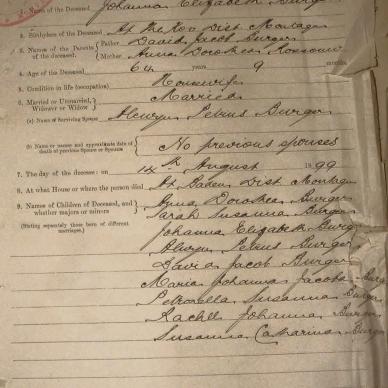 1. Name of the Deceased Johanna Elizabeth Burger
2. Birthplace of the Deceased At the Koo Dist Montagu
3. Names of the Parents of the deceased. Father David Jacob Burger
Mother Anna Dorothea Rossouw
4. Age of the Deceased 64 years 9 months
5. Condition in life (occupation) Housewife
6. Married or Unmarried, Widower or Widow Married
(a) Name of Surviving Spouse Alewyn Petrus Burger
(b) Name or names and approximate date of death of previous Spouse or Spouses No previous spouses
7. The day of the decease: on 14th August 1899
8. At what House or where the person died At Baden Dist Montagu
9. Names of Children of Deceased, and whether majors or minors Anna Dorothea Burger
Sarah Susanna Burger
(Stating separately those born of different marriages.) Johanna Elizabeth Burg
Alewyn Petrus Burger
David Jacob Burger
Maria Johanna Jacoba Burg
Petronella Susanna Burger
Rachel Johanna Burger
Susanna Catharina Burger